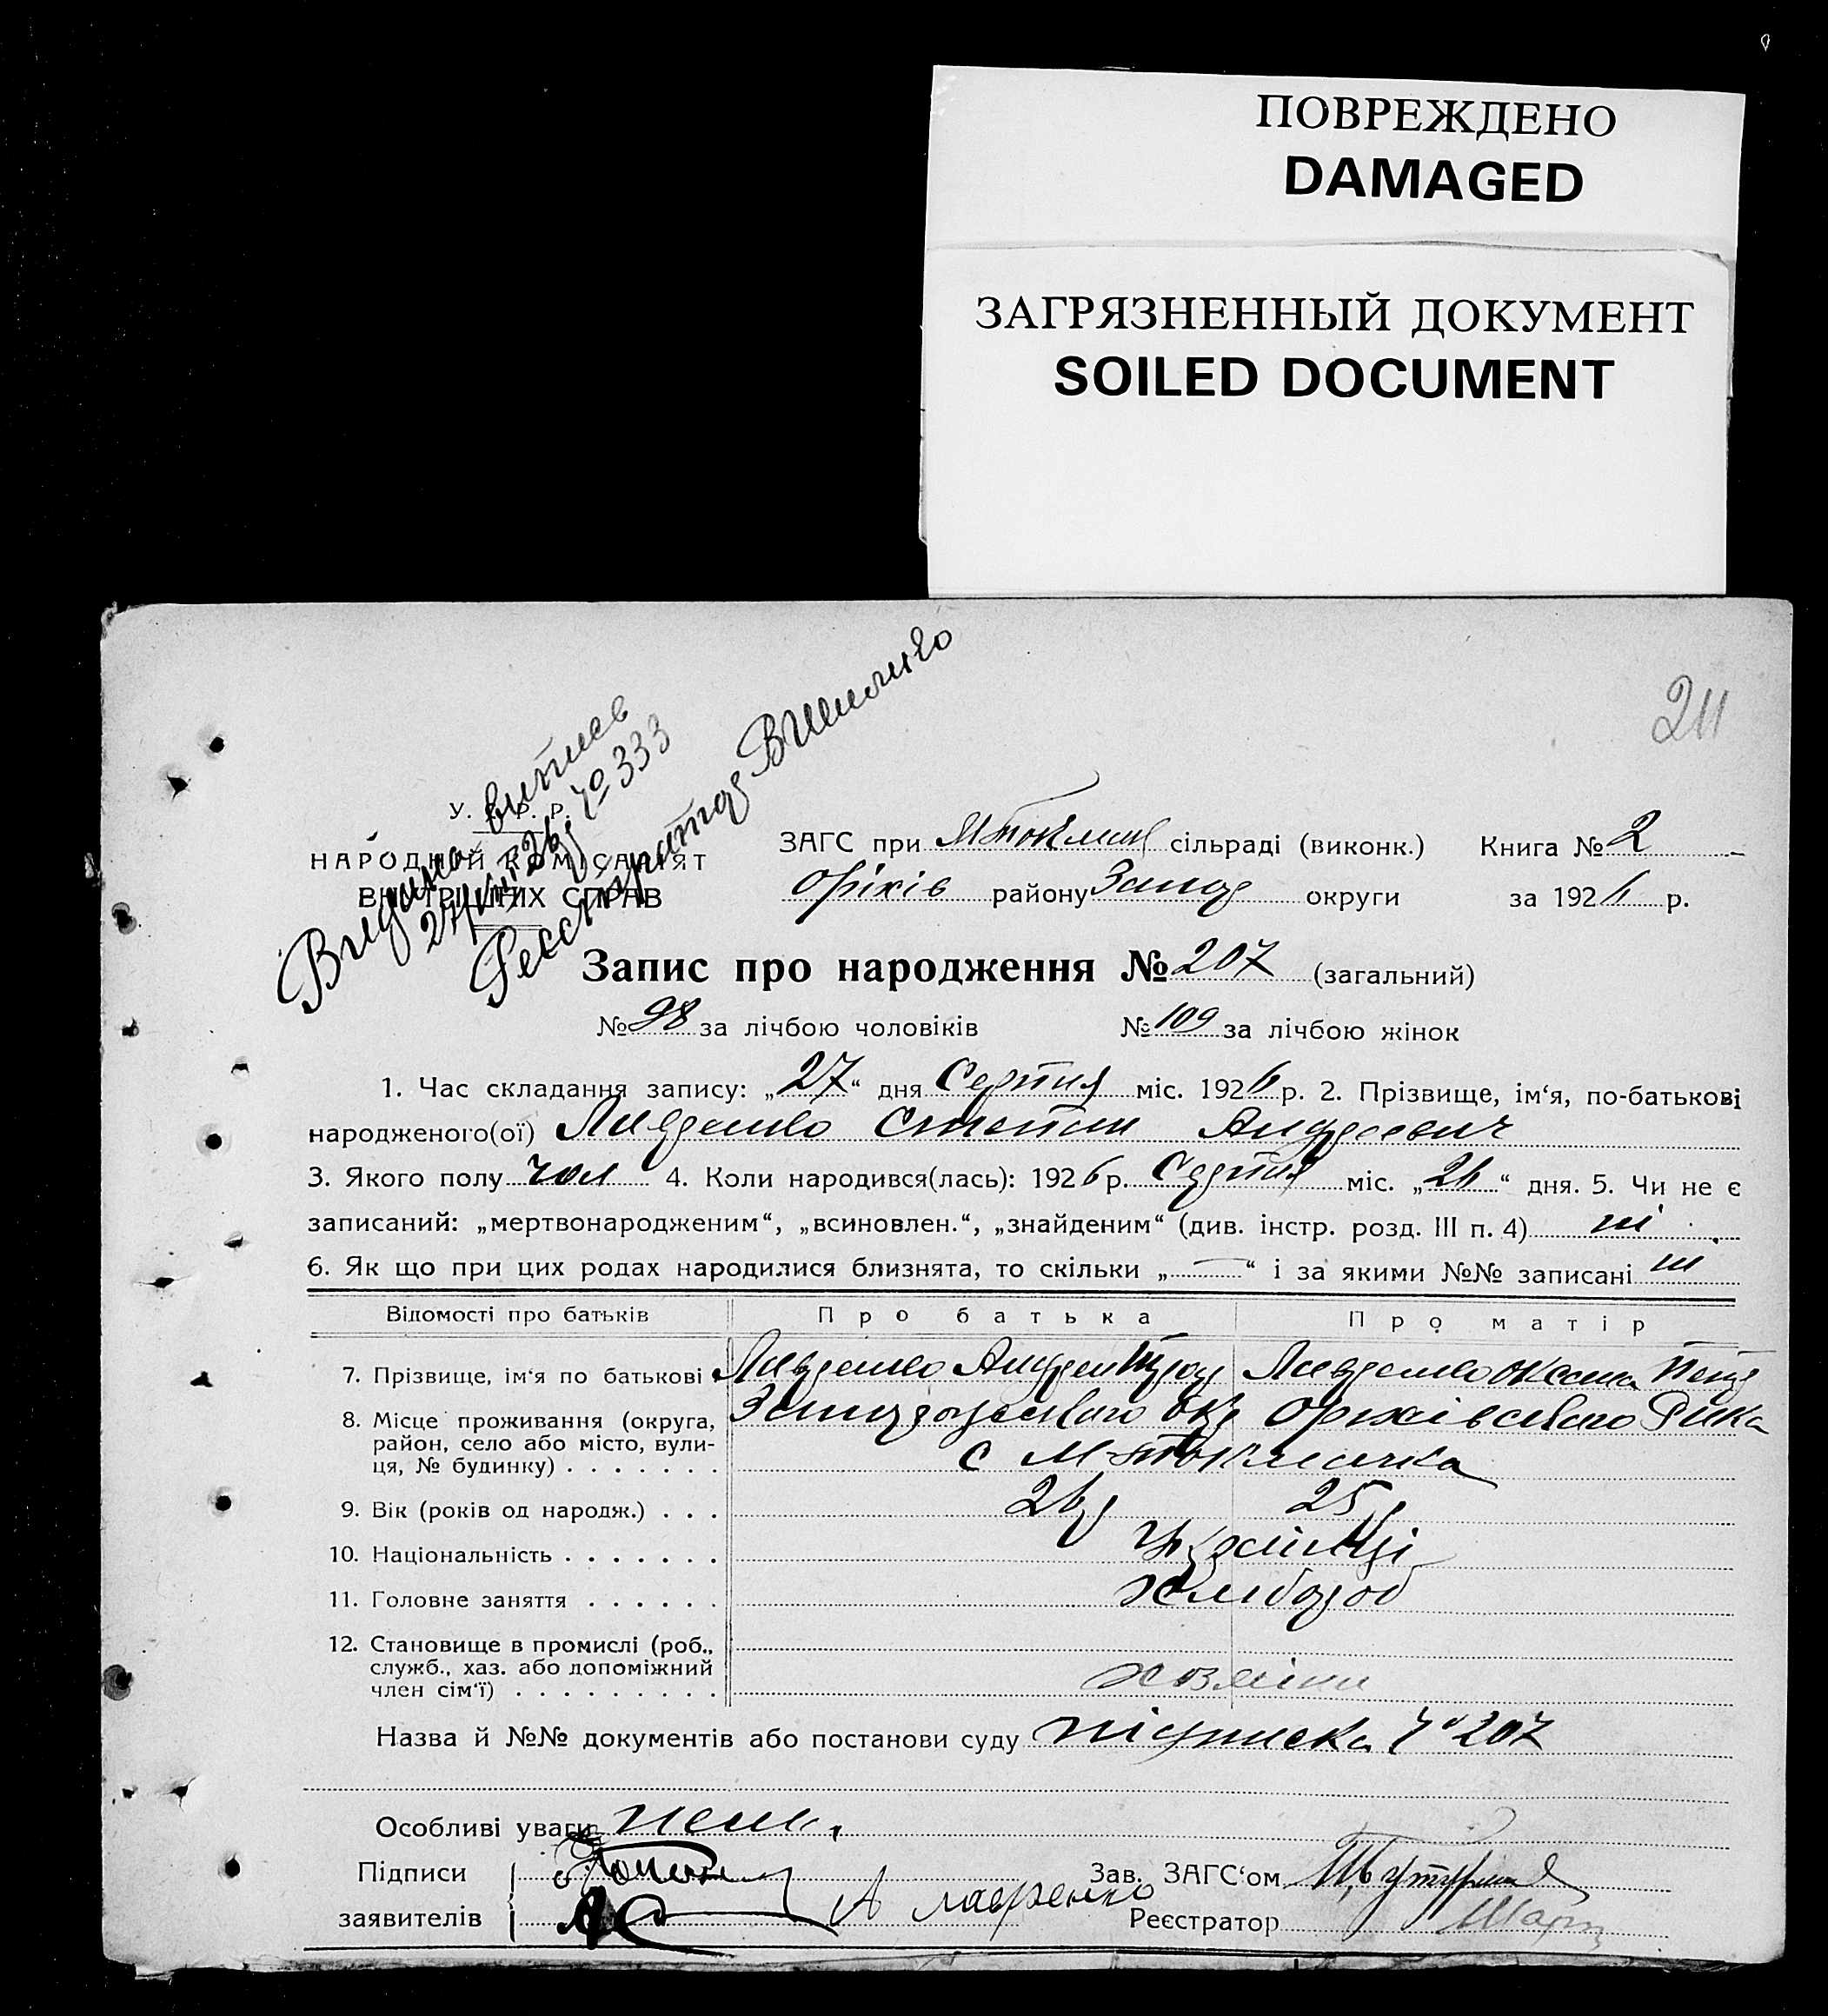 ПОВРЕЖДЕНО
DAMAGED
ЗАГРЯЗНЕННЫЙ ДОКУМЕНТ
SOILED DOCUMENT
211
Видано витись
27/VIII 26р № 333
Реєстратор
У. С. Р. Р.
НАРОДНИЙ КОМІСАРІЯТ
ВНУТРІШНІХ СПРАВ
ЗАГС при МТокмац сільраді (виконк.) Книга № 2
Оріхів району Запор округи за 1926 р.
Запис про народження № 207 (загальний)
№ 98 за лічбою чоловіків № 109 за лічбою жінок
1. Час складання запису: „27“ дня Серпня міс. 1926 р. 2. Прізвище, ім‘я, по-батькові
народженого(ої) Лавренко Степан Андреевич
3. Якого полу чол 4. Коли народився(лась): 1926 р. Серпня міс. „26“ дня. 5. Чи не є
записаний: „мертвонародженим“, „всиновлен.“, „знайденим“ (див. інстр. розд. III п. 4) ні
6. Як що при цих родах народилися близнята, то скільки „—“ і за якими №№ записані ні
Відомості про батьків Про батька Про матір
7. Прізвище, ім‘я по батькові Лавренко Андрей Лавренко Оксана Петр
8. Місце проживання (округа, Запорожського окр Оріхівського Рика
район, село або місто, вули- с М-Токмачка
ця, № будинку) . . . . . . .
9. Вік (років од народж.) . . . 26р 25р
10. Національність . . . . . . . Українці
11. Головне заняття . . . . . . хлібороб
12. Становище в промислі (роб.,
служб., хаз. або допоміжний
член сім‘ї) . . . . . . . . . хозяїни
Назва й №№ документів або постанови суду підписка № 207
Особливі уваги нема.
Підписи Зав. ЗАГС‘ом
заявителів А Лавренко Реєстратор